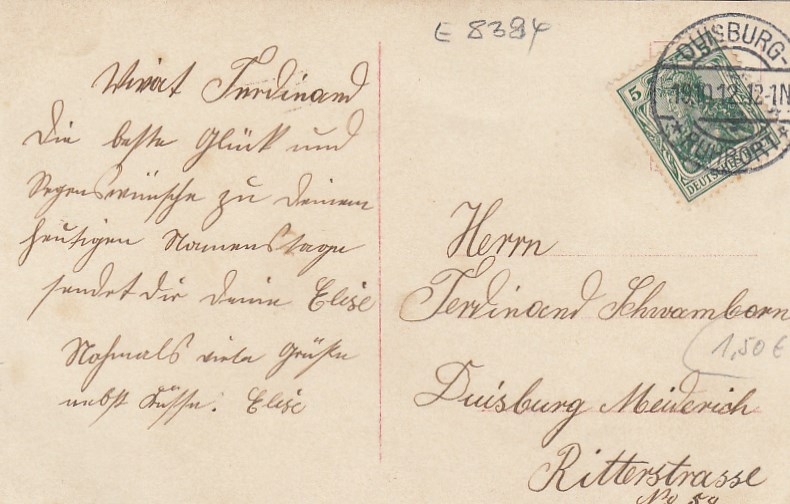 E 8394
Vivat Ferdinand
Die beste Glück und
Segenswünsche zu Deinem
heutigen Namenstage
sendet dir deine Elise
Nohmals viele Grüße
nebst Küsse. Elise
DUISBURG-
19.10.12.12-1N
RUHRORT
5
DEUTSCHES
Herrn
Ferdinand Schwamborn
1,50 €
Duisburg Meiderich
Ritterstrasse
No 59